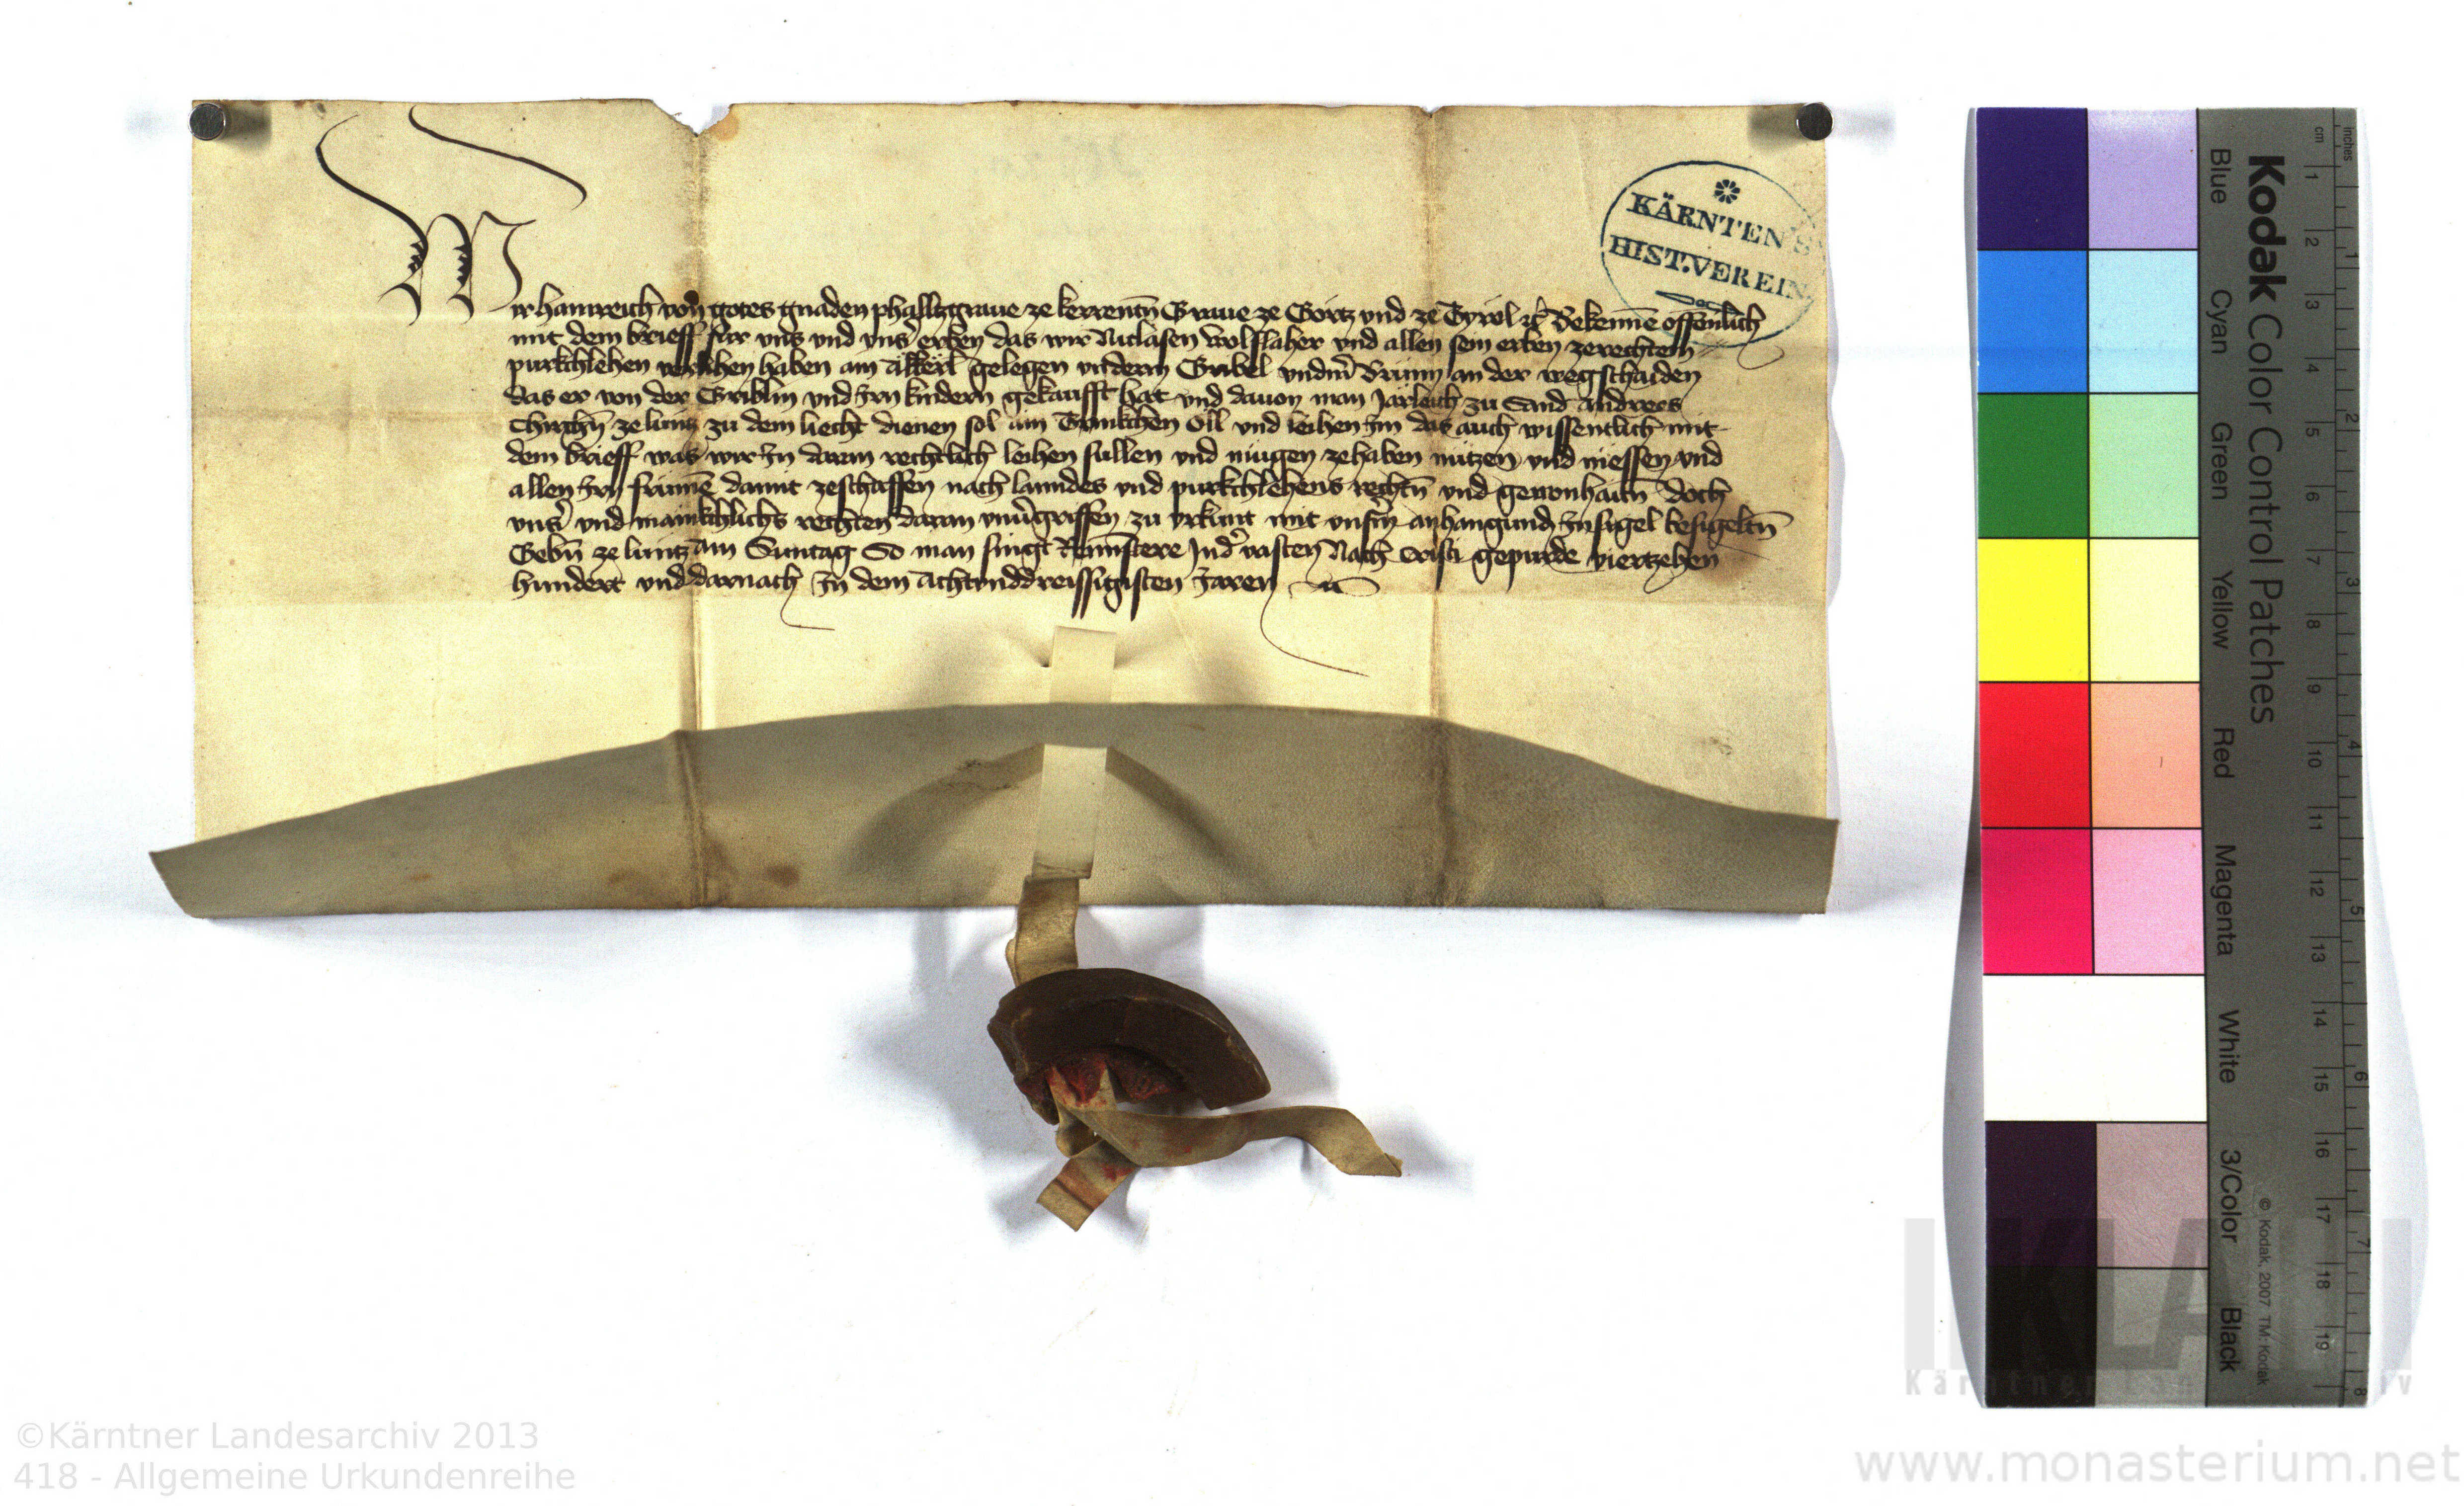 Wir hainreich von gotes gnaden phalltzgraue ze kerrentn̄ Graue ze Görtz vnd ze Tyrol ꝛc̄ Bekenne offennlich
mit dem brieff für vns vnd vns̄ erben das wir Niclasen Wolfflaher vnd allen sein erben zerechtem
purkchlehen verlihen haben ain äkkerl gelegen vnderm Gribel vndm̄ Brünn an der wegschaiden
das er von der Griblin vnd Irn kindern gekaufft hat vnd dauon man Järleich zu Sand Andrees
Chirchn̄ ze luntz zu dem liecht dienen sol ain Trinkchen Öll vnd leihen Im das auch wissentlich mit
dem brieff was wir In daran rechtlich leihen sullen vnd mügen zehaben nützen vnd niessen vnd
allen Irn frumē damit zeschaffen nach lanndes vnd purkchlehens rechtn̄ vnd gewonhaitn̄ Doch
vns̄ vnd mainkchlichs rechten daran vnu̇griffen zu vrkunt mit vnsm̄ anhangundn̄ Insigel besigeltn̄
Gebn̄ ze luntz am Suntag So man singt Reministere Ind̄ vasten Nach cristi gepurde viertzehen
hundert vnd darnach In dem Achtunddreissigisten Jaren
KÄRNTEN'S
HIST. VEREIN
Kodak Color Control Patches
Blue Cyan Green Yellow Red Magenta White 3/Color Black
© Kodak, 2007 TM: Kodak
cm 1 2 3 4 5 6 7 8 9 10 11 12 13 14 15 16 17 18 19
inches 1 2 3 4 5 6 7 8
KLA
©Kärntner Landesarchiv 2013
418 - Allgemeine Urkundenreihe
www.monasterium.net